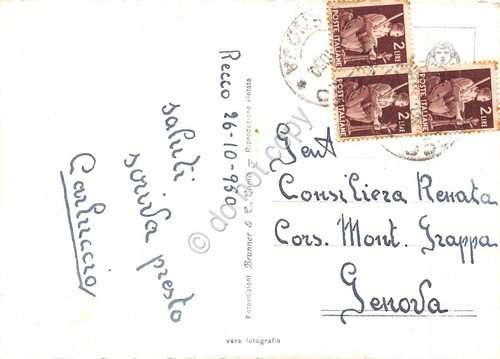 Recco 26-10-950
saluti
scriva presto
Carluccio
Fotoedizioni Brunner & C. Como — Riproduzione vietata
vera fotografia
POSTE ITALIANE
2 LIRE
POSTE ITALIANE
2 LIRE
POSTE ITALIANE
2 LIRE
Gent
Consiliera Renata
Cors. Mont. Grappa
Genova